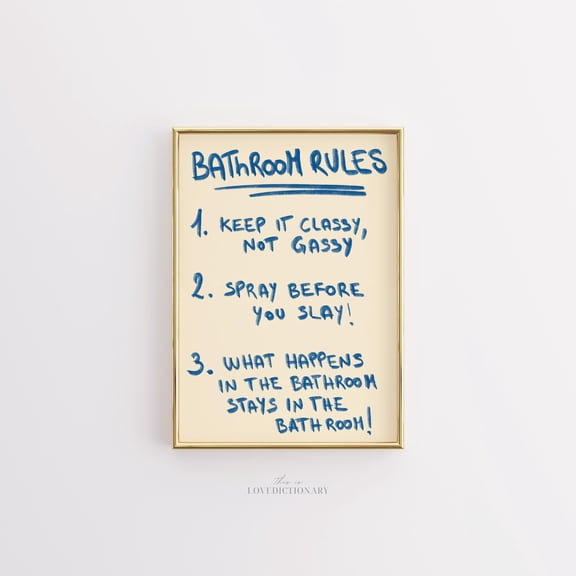 BATHROOM RULES
1. KEEP IT CLASSY,
NOT GASSY
2. SPRAY BEFORE
YOU SLAY!
3. WHAT HAPPENS
IN THE BATHROOM
STAYS IN THE
BATHROOM!
This is
LOVEDICTIONARY